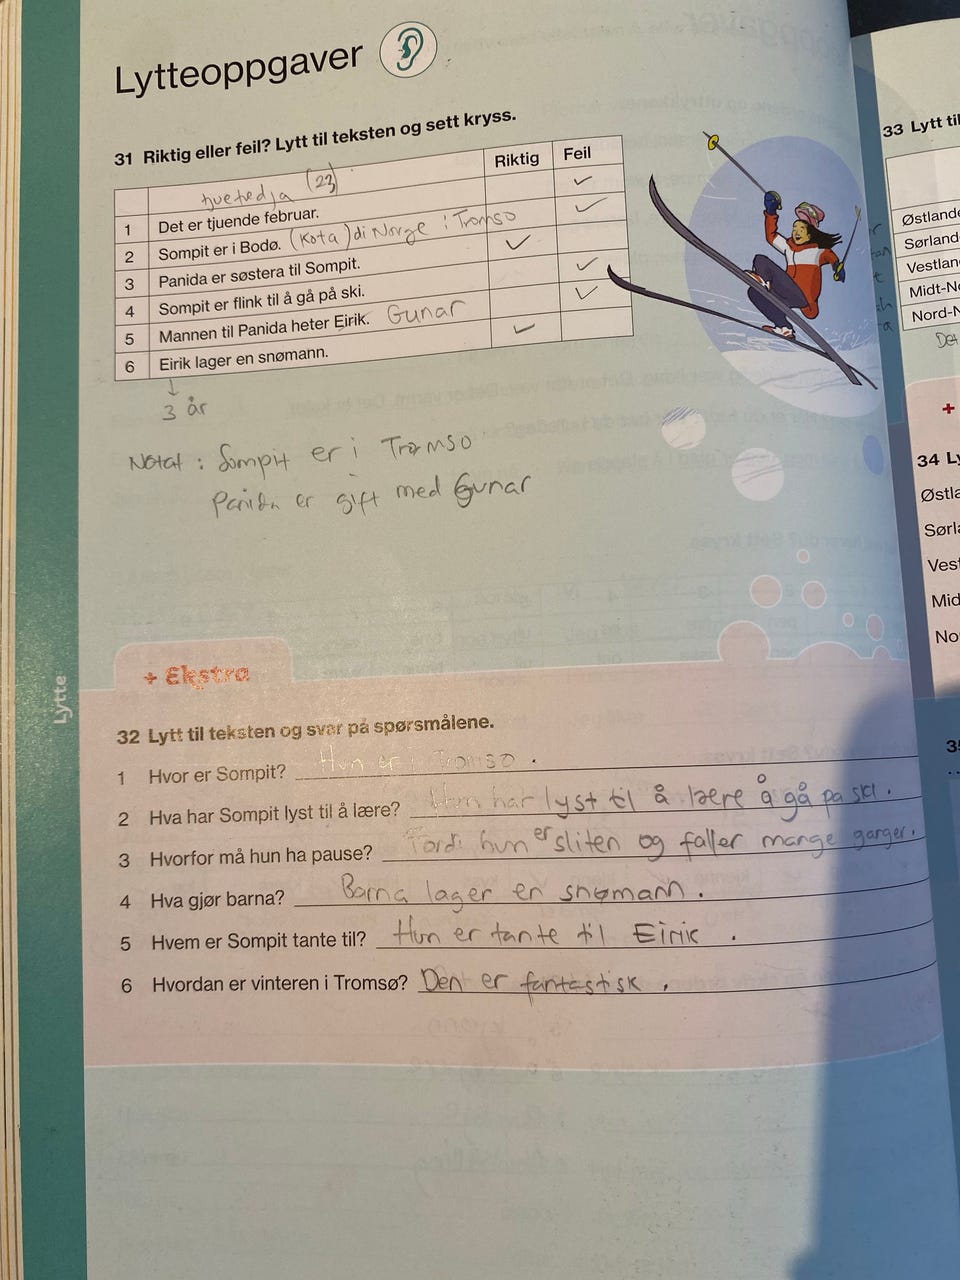 Lytteoppgaver
31 Riktig eller feil? Lytt til teksten og sett kryss.
Riktig Feil
tuetedja (23)
1 Det er tjuende februar. ✓
2 Sompit er i Bodø. (Kota) di Norge i Tromso ✓
3 Panida er søstera til Sompit. ✓
4 Sompit er flink til å gå på ski. ✓
5 Mannen til Panida heter Eirik. Gunar ✓
6 Eirik lager en snømann. ✓
↓
3 år
Notat : Sompit er i Tromso
Panida er gift med Gunar
+ Ekstra
32 Lytt til teksten og svar på spørsmålene.
1 Hvor er Sompit? Hun er i Tromso .
2 Hva har Sompit lyst til å lære? Hun har lyst til å lære å gå på ski .
3 Hvorfor må hun ha pause? Fordi hun er sliten og faller mange ganger.
4 Hva gjør barna? Barna lager en snømann .
5 Hvem er Sompit tante til? Hun er tante til Eirik .
6 Hvordan er vinteren i Tromsø? Den er fantastisk .
Lytte
33 Lytt til
Østlande
Sørland
Vestlan
Midt-No
Nord-N
Det
+
34 Ly
Østla
Sørla
Vest
Mid
No